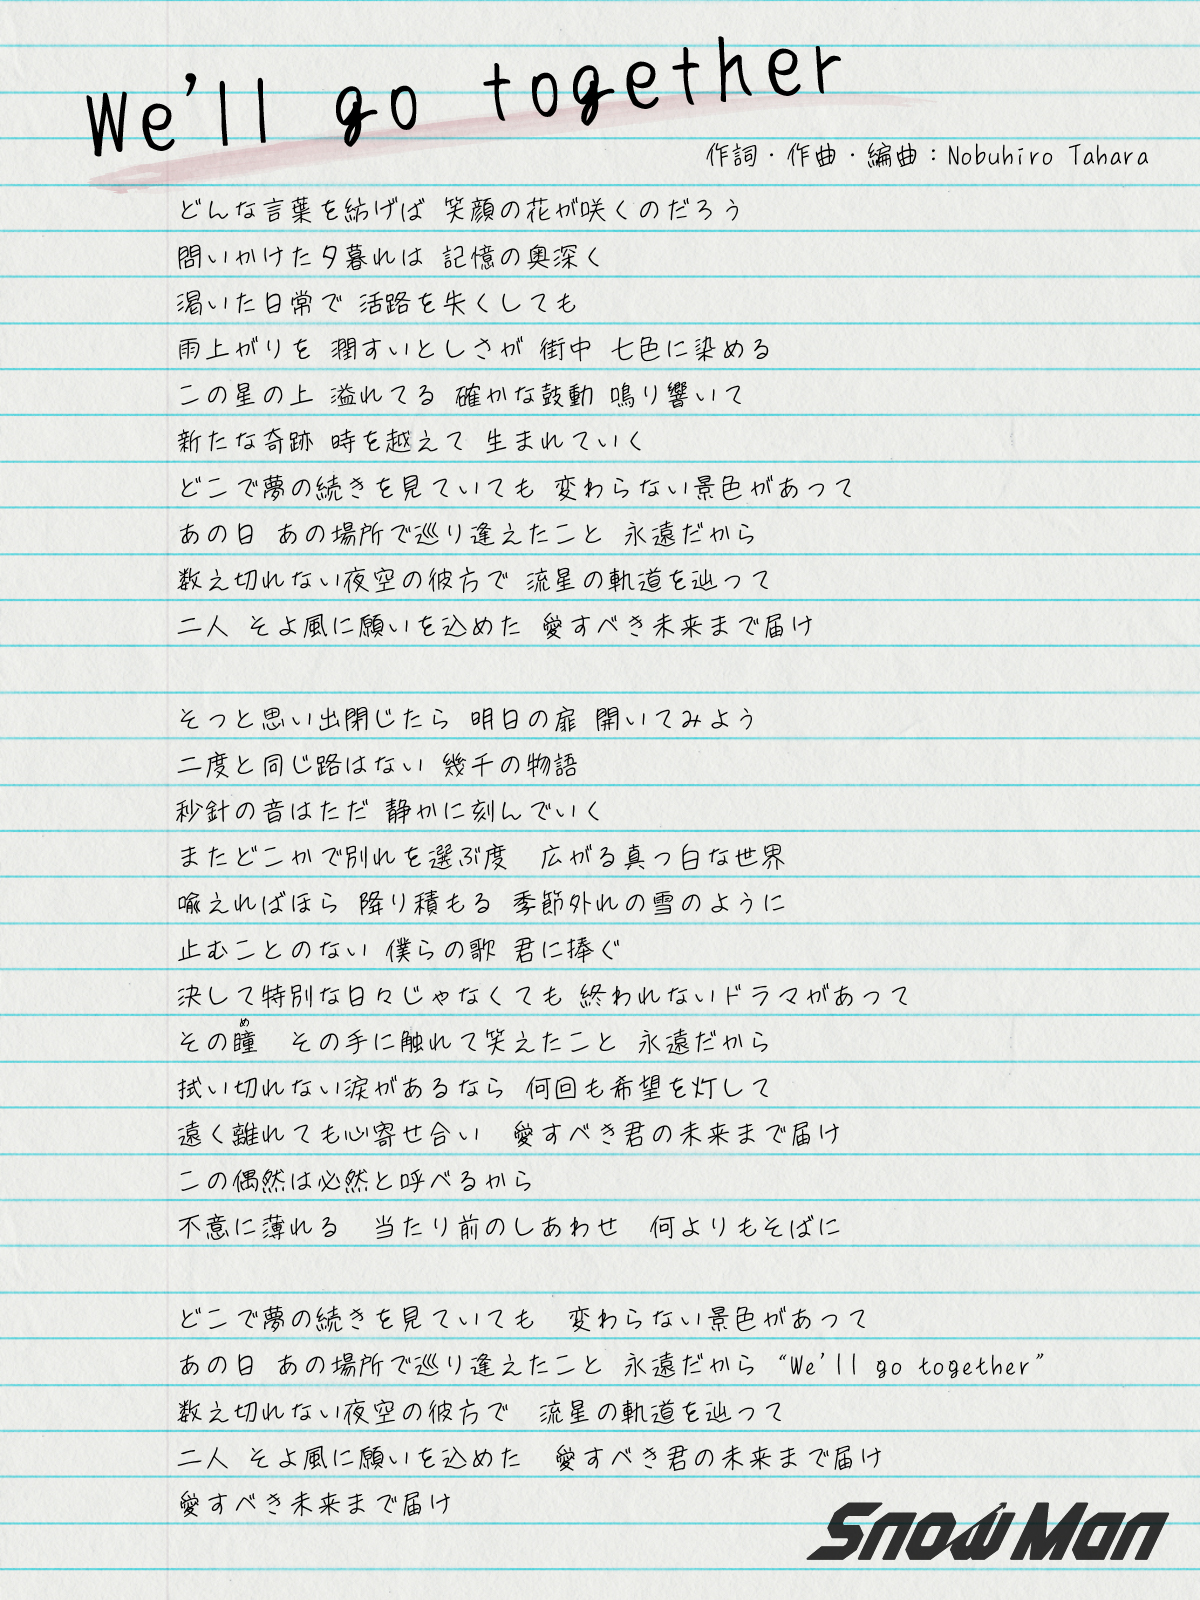 We'll go together
作詞・作曲・編曲：Nobuhiro Tahara
どんな言葉を紡げば 笑顔の花が咲くのだろう
問いかけた夕暮れは 記憶の奥深く
渇いた日常で 活路を失くしても
雨上がりを 潤すいとしさが 街中 七色に染める
この星の上 溢れてる 確かな鼓動 鳴り響いて
新たな奇跡 時を越えて 生まれていく
どこで夢の続きを見ていても 変わらない景色があって
あの日 あの場所で巡り逢えたこと 永遠だから
数え切れない夜空の彼方で 流星の軌道を辿って
二人 そよ風に願いを込めた 愛すべき未来まで届け
そっと思い出閉じたら 明日の扉 開いてみよう
二度と同じ路はない 幾千の物語
秒針の音はただ 静かに刻んでいく
またどこかで別れを選ぶ度　広がる真っ白な世界
喩えればほら 降り積もる 季節外れの雪のように
止むことのない 僕らの歌 君に捧ぐ
決して特別な日々じゃなくても 終われないドラマがあって
その瞳(め)　その手に触れて笑えたこと 永遠だから
拭い切れない涙があるなら 何回も希望を灯して
遠く離れても心寄せ合い　愛すべき君の未来まで届け
この偶然は必然と呼べるから
不意に薄れる　当たり前のしあわせ　何よりもそばに
どこで夢の続きを見ていても　変わらない景色があって
あの日 あの場所で巡り逢えたこと 永遠だから “We'll go together”
数え切れない夜空の彼方で　流星の軌道を辿って
二人 そよ風に願いを込めた　愛すべき君の未来まで届け
愛すべき未来まで届け
Snow Man